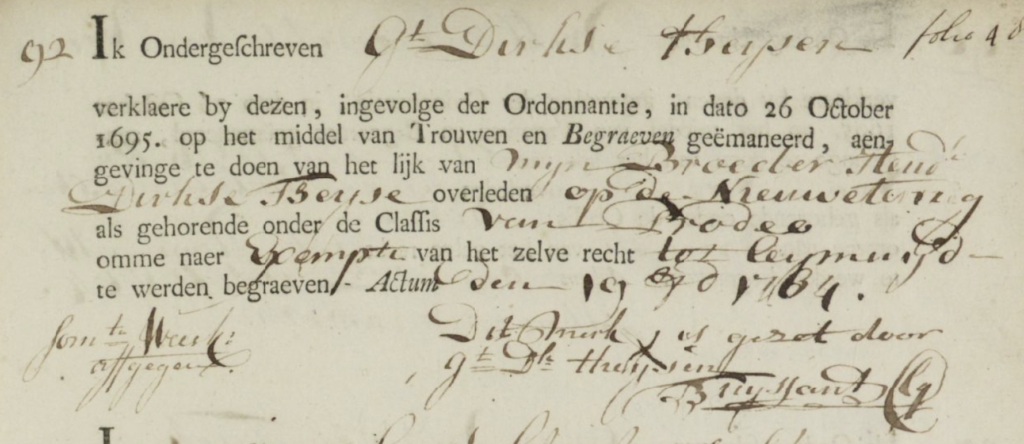 92 Ik Ondergeschreven Gt Dirkse Theysen folio 48
verklaere by dezen, ingevolge der Ordonnantie, in dato 26 October
1695. op het middel van Trouwen en Begraeven geëmaneerd, aen-
gevinge te doen van het lijk van mijn Broeder Hend
Dirkse Theyse overleden op de Nieuwetering
als gehorende onder de Classis van Prodeo
omme naer Exemptie van het zelve recht tot leymuijd-
te werden begraeven,- Actum den 19 1784.
Dit Merk x is gezet door
affgegeven. gt Dk Theyssen